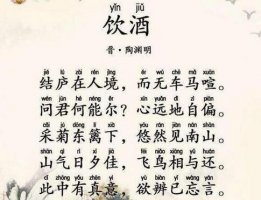 yǐn jiǔ
饮酒
晋·陶渊明
jié lú zài rén jìng ér wú chē mǎ xuān
结庐在人境，而无车马喧。
wèn jūn hé néng ěr xīn yuǎn dì zì piān
问君何能尔？心远地自偏。
cǎi jú dōng lí xià yōu rán jiàn nán shān
采菊东篱下，悠然见南山。
shān qì rì xī jiā fēi niǎo xiāng yǔ huán
山气日夕佳，飞鸟相与还。
cǐ zhōng yǒu zhēn yì yù biàn yǐ wàng yán
此中有真意，欲辨已忘言。